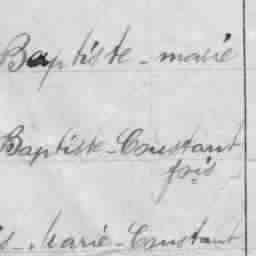 Baptiste - marie
Baptiste - Constant
fois
s - Marie - Constant